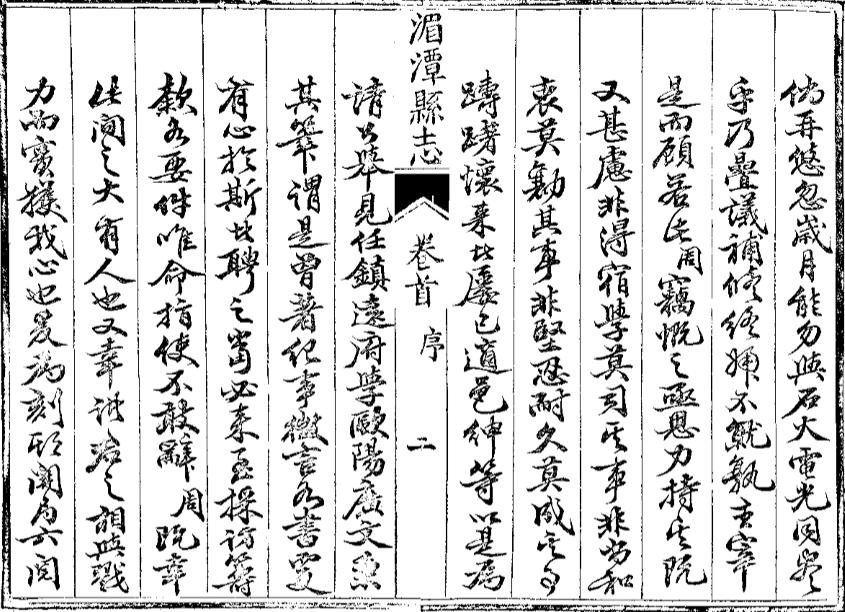 偽再悠忽歲月能勿與石火電光同盡
乎乃疊議補修經
是而顧若此周竊慨之亟思力持其阨
又甚慮非得宿學莫司其事非協和
衷莫勷其事非堅忍耐久莫成其事
躊躇懷来者屢已適邑紳等以是為
湄潭縣志
卷首
序
二
請公舉見任鎮遠府學歐陽廣文主
其筆謂是曾著紀事微言各書更
有心於斯者聘之當必来至採訪籌
款各要件唯命指使不敢辭周既幸
任間之大有人也又幸諸君之
力而實獲我心也爰為刻期開局共